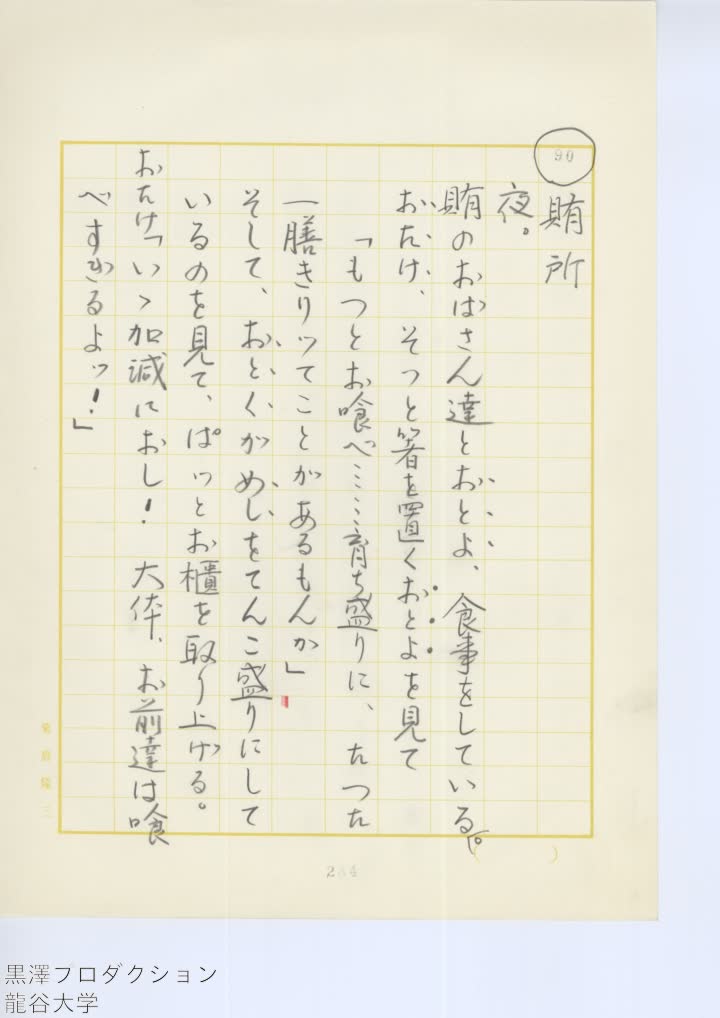 90
賄所
夜。
賄のおばさん達とおとよ、食事をしている。
おたけ、そつと箸を置くおとよを見て
「もつとお喰べ……育ち盛りに、たつた
一膳きりッてことがあるもんか」
そして、おとくがめしをてんこ盛りにして
いるのを見て、ぱッとお櫃を取り上げる。
おたけ「いゝ加減におし！大体、お前達は喰
べすぎるよッ！」
黒澤プロダクション
龍谷大学